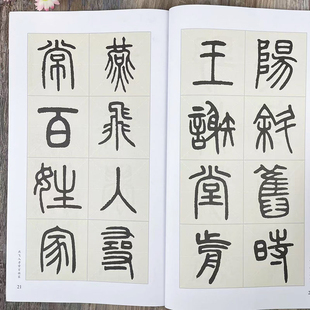 陽斜舊時
王謝堂前
燕飛入尋
常百姓家
23